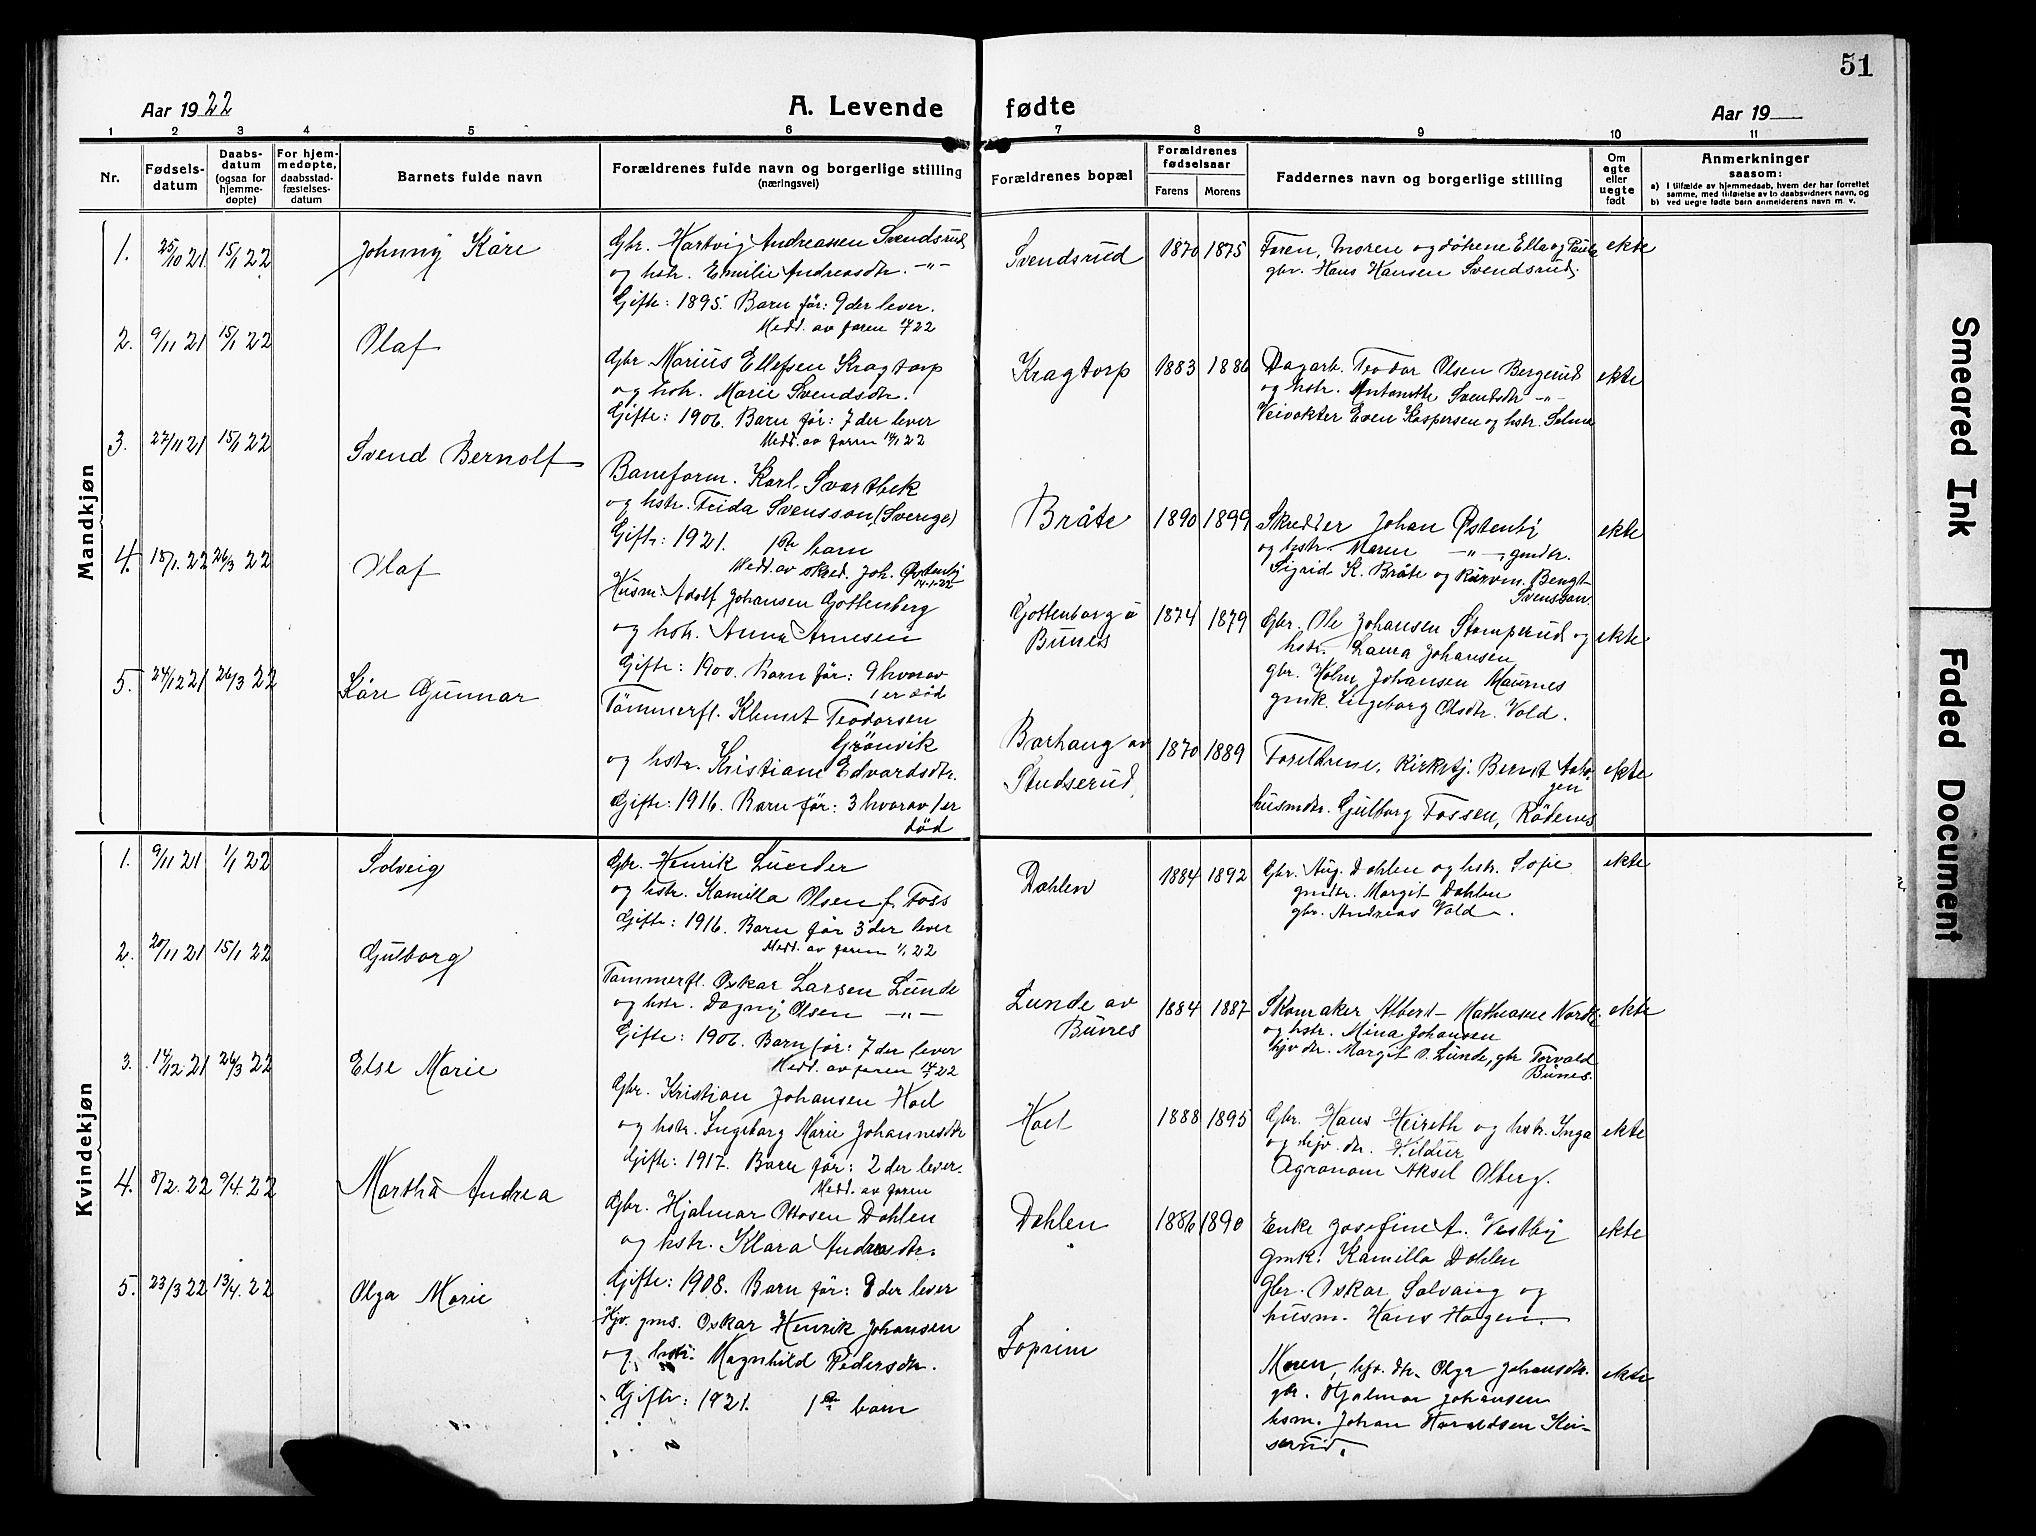 51
Aar 1922
A. Levende fødte
Aar 19
1 2 3 4 5 6 7 8 9 10 11
Nr.
Fødsels-
datum
Daabs-
datum
(ogsaa for
hjemme-
døpte)
For hjem-
medøpte,
daabsstad-
fæstelses-
datum
Barnets fulde navn
Forældrenes fulde navn og borgerlige stilling
(næringsvei)
Forældrenes bopæl
Forældrenes
fødselsaar
Farens Morens
Faddernes navn og borgerlige stilling
Om
egte
eller
uegte
født
Anmerkninger
saasom:
a) I tilfælde av hjemmedaab, hvem der har forrettet
samme, med tilføielse av to daabsvidners navn, og
b) ved uegte fødte barn anmelderens navn m. v.
Mandkjøn
1. 25/10 21 15/1 22 Johnny Kåre
Gbr. Hartvig Andreassen Svendsrud
og hstr. Emilie Andreasdtr. -"-
Gifte: 1895. Barn før: 9 der lever.
Medd. av faren
Svendsrud 1870 1875
Faren, moren og døtrene Ella og Paula
gbr. Hans Hansen Svendsrud.
ekte
2. 9/11 21 15/1 22 Olaf
Gbr. Marius Ellefsen Kragtorp
og hstr. Marie Svendsdtr.
Gifte: 1906. Barn før: 7 der lever
Medd. av faren
Kragtorp 1883 1886
Dagarb. Teodor Olsen Bergerud
og hstr. Antonette Svendsdtr -"-
Veivokter Even Kaspersen og hstr. Selma
ekte
3. 27/11 21 15/1 22 Svend Bernolf
Baneform. Karl Svartbek
og hstr. Frida Svensson (Sverige)
Gifte: 1921. 1ste barn
Medd. av skred. Joh. Østenby
14-1-22
Bråte 1890 1899
Skredder Johan Østenby
og hstr. Maren -"-, gmdtr.
Sigrid K. Bråte og Bengt
Svensson.
ekte
4. 15/1. 22 26/3 22 Olaf
Husm. Adolf Johansen Gottenberg
og hstr. Anna Arnesen
Gifte: 1900. Barn før: 9 hvorav
1 er død
Gottenborg u
Bunes
1874 1879
Gbr. Ole Johansen Stomperud og
hstr. Laura Johansen
gbr. Holm Johansen Maurnes
gmk. Ingeborg Olsdtr. Vold.
ekte
5. 24/12 21 26/3 22 Kåre Gunnar
Tømmerfl. Klemet Teodorsen
Grönvik
og hstr. Kristiane Edvardsdtr.
Gifte: 1916. Barn før: 3 hvorav 1 er
død
Barhaug av
Studserud,
1870 1889
Foreldrene, Kirketj. Bernt
husmdtr. Gulborg Fossen, Rödenes
ekte
Kvindekjøn
1. 9/11 21 1/1 22 Solveig
Gbr. Henrik Lunder
og hstr. Kamilla Olsen f. Foss
Gifte: 1916. Barn før 3 der lever
Medd. av faren 1/1 22
Dahlen 1884 1892
Gbr. Aug. Dahlen og hstr. Sofie
gmdtr. Margit Dahlen
gbr. Andreas Vold.
ekte
2. 20/11 21 15/1 22 Gulborg
Tømmerfl. Oskar Larsen Lunde
og hstr. Dagny Olsen -"-
Gifte: 1906. Barn før: 7 der lever
Medd. av faren
Lunde av
Bunes
1884 1887
Skomaker Albert Mathiasen
og hstr. Mina Johansen
hjv dtr. Margit O. Lunde, gbr Torvald
Bunes.
ekte
3. 14/12. 21 26/3 22 Else Marie
Gbr. Kristian Johansen Hoel
og hstr. Ingeborg Marie Johannesdtr
Gifte: 1917. Barn før: 2 der lever.
Medd. av faren
Hoel 1888 1895
Gbr. Hans Heireth og hstr. Inga
og hjv. dtr. Vildur
Agronom Aksel Olberg.
ekte
4. 8/2. 22 9/4. 22 Martha Andrea
Gbr. Hjalmar Ottosen Dahlen
og hstr. Klara Andreasdtr.
Gifte: 1908. Barn før: 8 der lever
Dahlen 1886 1890
Enke Josefine A. Vestby
gmk. Kamilla Dahlen
Gbr. Oskar Solvang og
husm. Hans Hagen.
ekte
5. 23/3 22 13/4. 22 Olga Marie
Hjv. gms. Oskar Henrik Johansen
og hstr. Magnhild Pedersdtr.
Gifte: 1921. 1ste barn
Soprim
Moren, hjv. dtr. Olga Johansdtr.
gbr. Hjalmar Johansen
hsm. Johan Haraldsen Kin-
serud.
ekte
Smeared Ink
Faded Document